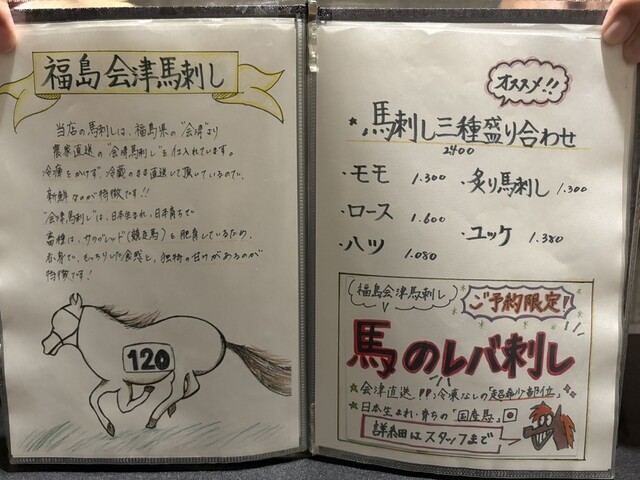 福島会津馬刺し
当店の馬刺しは、福島県の"会津"より
農家直送の"会津馬刺し"を仕入れています。
冷凍をかけず、冷蔵のまま直送して頂いているので、
新鮮なのが特徴です!!
"会津馬刺し"は、日本生まれ、日本育ちで
畜種は、サラブレッド(競走馬)を肥育しているため、
赤身で、もっちりした食感と、独特の甘けがあるのが
特徴です!
120
オススメ!!
★馬刺し三種盛り合わせ
2400
・モモ 1.300
・炙り馬刺し 1.300
・ロース 1.600
・ユッケ 1.380
・ハツ 1.080
福島会津馬刺し
ご予約限定!
馬のレバ刺し
★会津直送!!冷凍なしの「超希少部位」
★日本生まれ・育ちの「国産馬」
詳細はスタッフまで